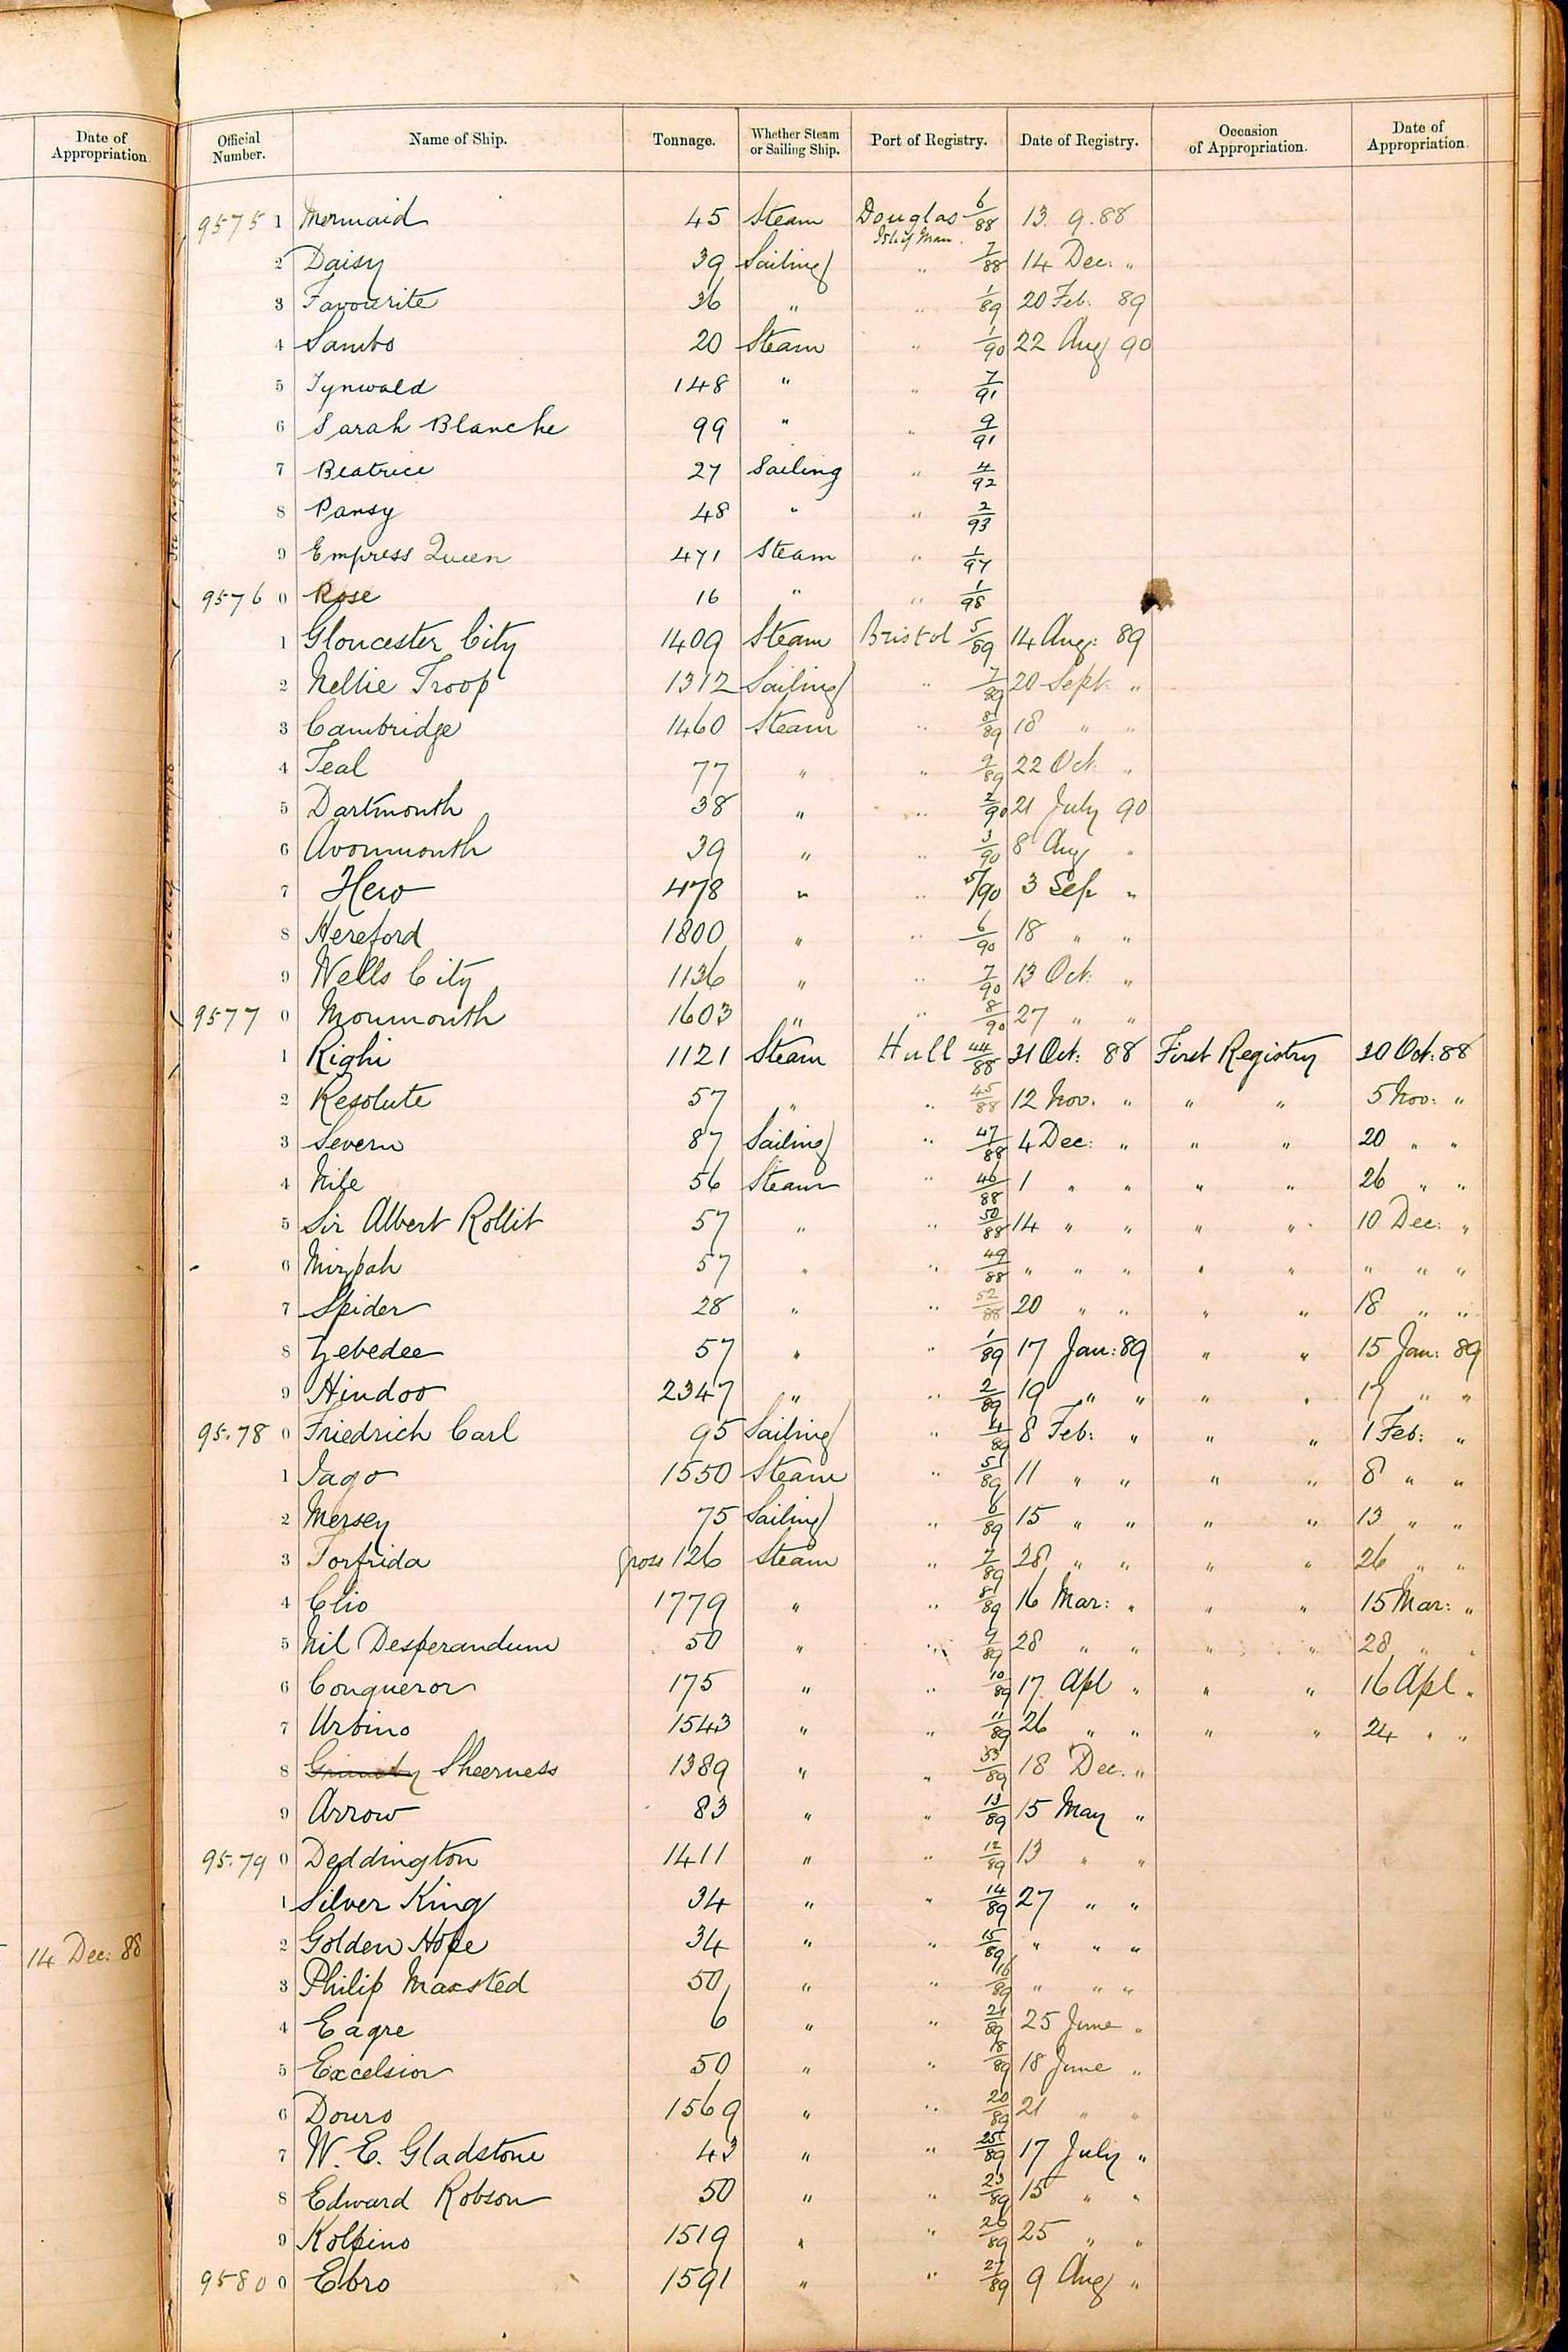 Date of Appropriation.
14 Dec: 88
Official Number. Name of Ship. Tonnage. Whether Steam or Sailing Ship. Port of Registry. Date of Registry. Occasion of Appropriation. Date of Appropriation.
9575 1 Mermaid 45 Steam Douglas Isle of Man 6/88 13 . 9 . 88
2 Daisy 39 Sailing " 7/88 14 Dec: "
3 Favourite 36 " " 1/89 20 Feb. 89
4 Sambo 20 Steam " 1/90 22 Aug 90
5 Tynwald 148 " " 7/91
6 Sarah Blanche 99 " " 9/91
7 Beatrice 27 Sailing " 4/92
8 Pansy 48 " " 2/93
9 Empress Queen 471 Steam " 1/97
9576 0 Rose 16 " " 1/98
1 Gloucester City 1409 Steam Bristol 5/89 14 Aug: 89
2 Nellie Troop 1312 Sailing " 7/89 20 Sept. "
3 Cambridge 1460 Steam " 8/89 18 " "
4 Teal 77 " " 9/89 22 Oct: "
5 Dartmouth 38 " " 2/90 21 July 90
6 Avonmouth 39 " " 3/90 8 Aug "
7 Hero 478 " " 5/90 3 Sep "
8 Hereford 1800 " " 6/90 18 " "
9 Wells City 1136 " " 7/90 13 Oct: "
9577 0 Monmouth 1603 " " 8/90 27 " "
1 Righi 1121 Steam Hull 44/88 31 Oct: 88 First Registry 30 Oct: 88
2 Resolute 57 " " 45/88 12 Nov. " " " 5 Nov: "
3 Severn 87 Sailing " 47/88 4 Dec: " " " 20 " "
4 Nile 56 Steam " 46/88 1 " " " " 26 " "
5 Sir Albert Rollit 57 " " 50/88 14 " " " " 10 Dec: "
6 Mizpah 57 " " 49/88 " " " " " " " "
7 Spider 28 " " 52/88 20 " " " " 18 " "
8 Zebedee 57 " " 1/89 17 Jan: 89 " " 15 Jan: 89
9 Hindoo 2347 " " 2/89 19 " " " " 17 " "
95.78 0 Friedrich Carl 95 Sailing " 4/89 8 Feb: " " " 1 Feb: "
1 Iago 1550 Steam " 5/89 11 " " " " 8 " "
2 Mersey 75 Sailing " 6/89 15 " " " " 13 " "
3 Torfrida gross 126 Steam " 7/89 28 " " " " 26 " "
4 Clio 1779 " " 8/89 16 Mar: " " " 15 Mar: "
5 Nil Desperandum 50 " " 9/89 28 " " " " 28 " "
6 Conqueror 175 " " 10/89 17 Apl " " " 16 Apl "
7 Urbino 1543 " " 11/89 26 " " " " 24 " "
8 Grimsby Sheerness 1389 " " 33/89 18 Dec. "
9 Arrow 83 " " 13/89 15 May "
95.79 0 Deddington 1411 " " 12/89 13 " "
1 Silver King 34 " " 14/89 27 " "
2 Golden Hope 34 " " 15/89 " " "
3 Philip Maxsted 50 " " 16/89 " " "
4 Eagre 6 " " 21/89 25 June "
5 Excelsior 50 " " 18/89 18 June "
6 Douro 1569 " " 20/89 21 " "
7 W. E. Gladstone 43 " " 25/89 17 July "
8 Edward Robson 50 " " 23/89 15 " "
9 Kolpino 1519 " " 26/89 25 " "
9580 0 Ebro 1591 " " 27/89 9 Aug "